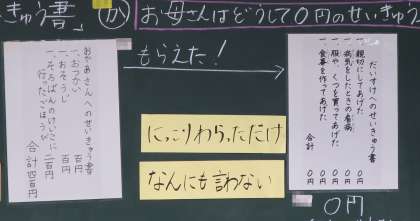 きゅう書」
か
お母さんはどうして0円のせいきゅう
もらえた!
おかあさんへのせいきゅう書
一、おつかい 百円
一、おそうじ 百円
一、そろばんのけいこに
行ったごほうび 二百円
合計 四百円
にっこりわらっただけ
なんにも言わない
だいすけへのせいきゅう書
一、親切にしてあげた 0円
一、病気をしたときの看病 0円
一、服や、くつを買ってあげた 0円
一、食事を作ってあげた 0円
合計 0円
0円